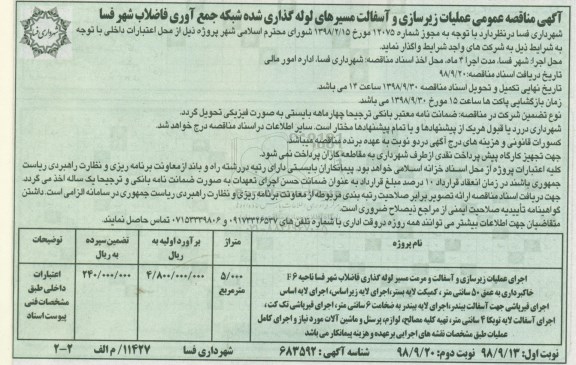 آگهی مناقصه عمومی عملیات زیرسازی و آسفالت مسیرهای لوله گذاری شده شبکه جمع آوری فاضلاب شهر فسا
شهرداری فسا
شهرداری فسا در نظر دارد با توجه به مجوز شماره ۱۲۰۷۵ مورخ ۱۳۹۸/۲/۱۵ شورای محترم اسلامی شهر پروژه ذیل از محل اعتبارات داخلی با توجه
به شرایط ذیل به شرکت های واجد شرایط واگذار نماید.
محل اجرا: شهر فسا، مدت اجرا ۴ ماه، محل اخذ اسناد مناقصه: شهرداری فسا، اداره امور مالی
تاریخ دریافت اسناد مناقصه: ۹۸/۹/۲۰
تاریخ نهایی تکمیل و تحویل اسناد مناقصه ۱۳۹۸/۹/۳۰ ساعت ۱۴ می باشد.
زمان بازگشایی پاکت ها ساعت ۱۵ مورخ ۱۳۹۸/۹/۳۰ می باشد.
نوع تضمین شرکت در مناقصه: ضمانت نامه معتبر بانکی ترجیحا چهارماهه بایستی به صورت فیزیکی تحویل گردد.
شهرداری در رد یا قبول هریک از پیشنهادها و یا تمام پیشنهادها مختار است. سایر اطلاعات در اسناد مناقصه درج خواهد شد.
کسورات قانونی و هزینه های درج آگهی در دو نوبت به عهده برنده مناقصه میباشد
جهت تجهیز کارگاه پیش پرداخت نقدی از طرف شهرداری به مقاطعه کاران پرداخت نمی شود.
کلیه اعتبارات پروژه از محل اسناد خزانه اسلامی خواهد بود. پیمانکاران بایستی دارای رتبه در رشته راه و باند از معاونت برنامه ریزی و نظارت راهبردی ریاست
جمهوری باشند در زمان انعقاد قرارداد ۱۰ درصد مبلغ قرارداد به عنوان ضمانت حسن اجرای تعهدات به صورت ضمانت نامه بانکی و ترجیحا یک ساله اخذ می گردد.
جهت دریافت اسناد مناقصه ارائه تصویر برابر صلاحیت رتبه بندی مربوطه از معاونت برنامه ریزی و نظارت راهبردی ریاست جمهوری در سامانه الزامی است. داشتن
گواهینامه تأییدیه صلاحیت ایمنی از مراجع ذیصلاح ضروری است.
متقاضیان جهت اطلاعات بیشتر می توانند همه روزه در وقت اداری با شماره تلفن های ۰۹۱۷۳۳۲۶۵۳۷ و ۰۷۱۵۳۳۳۹۸۰۶ تماس حاصل نمایند
نام پروژه | متراژ | برآورد اولیه به ریال | تضمین سپرده به ریال | توضیحات
اجرای عملیات زیرسازی و آسفالت و مرمت مسیر لوله گذاری فاضلاب شهر فسا ناحیه F6
خاکبرداری به عمق ۵۰ سانتی متر، کمپکت لایه بستر، اجرای لایه زیراساس، اجرای لایه اساس
اجرای قیرپاشی جهت آسفالت بیندر، اجرای لایه بیندر به ضخامت ۶ سانتی متر، اجرای قیرپاشی تک کت،
اجرای آسفالت لایه توپکا ۴ سانتی متر، تهیه کلیه مصالح، لوازم، پرسنل و ماشین آلات مورد نیاز و اجرای کامل
عملیات طبق مشخصات نقشه های اجرایی بر عهده و هزینه پیمانکار می باشد
۵/۰۰۰ مترمربع
۴/۸۰۰/۰۰۰/۰۰۰
۲۴۰/۰۰۰/۰۰۰
اعتبارات
داخلی طبق
مشخصات فنی
پیوست اسناد
نوبت اول: ۹۸/۹/۱۳ نوبت دوم: ۹۸/۹/۲۰ شناسه آگهی: ۶۸۳۵۹۲ شهرداری فسا ۱۱۴۲۷/م الف ۲-۲